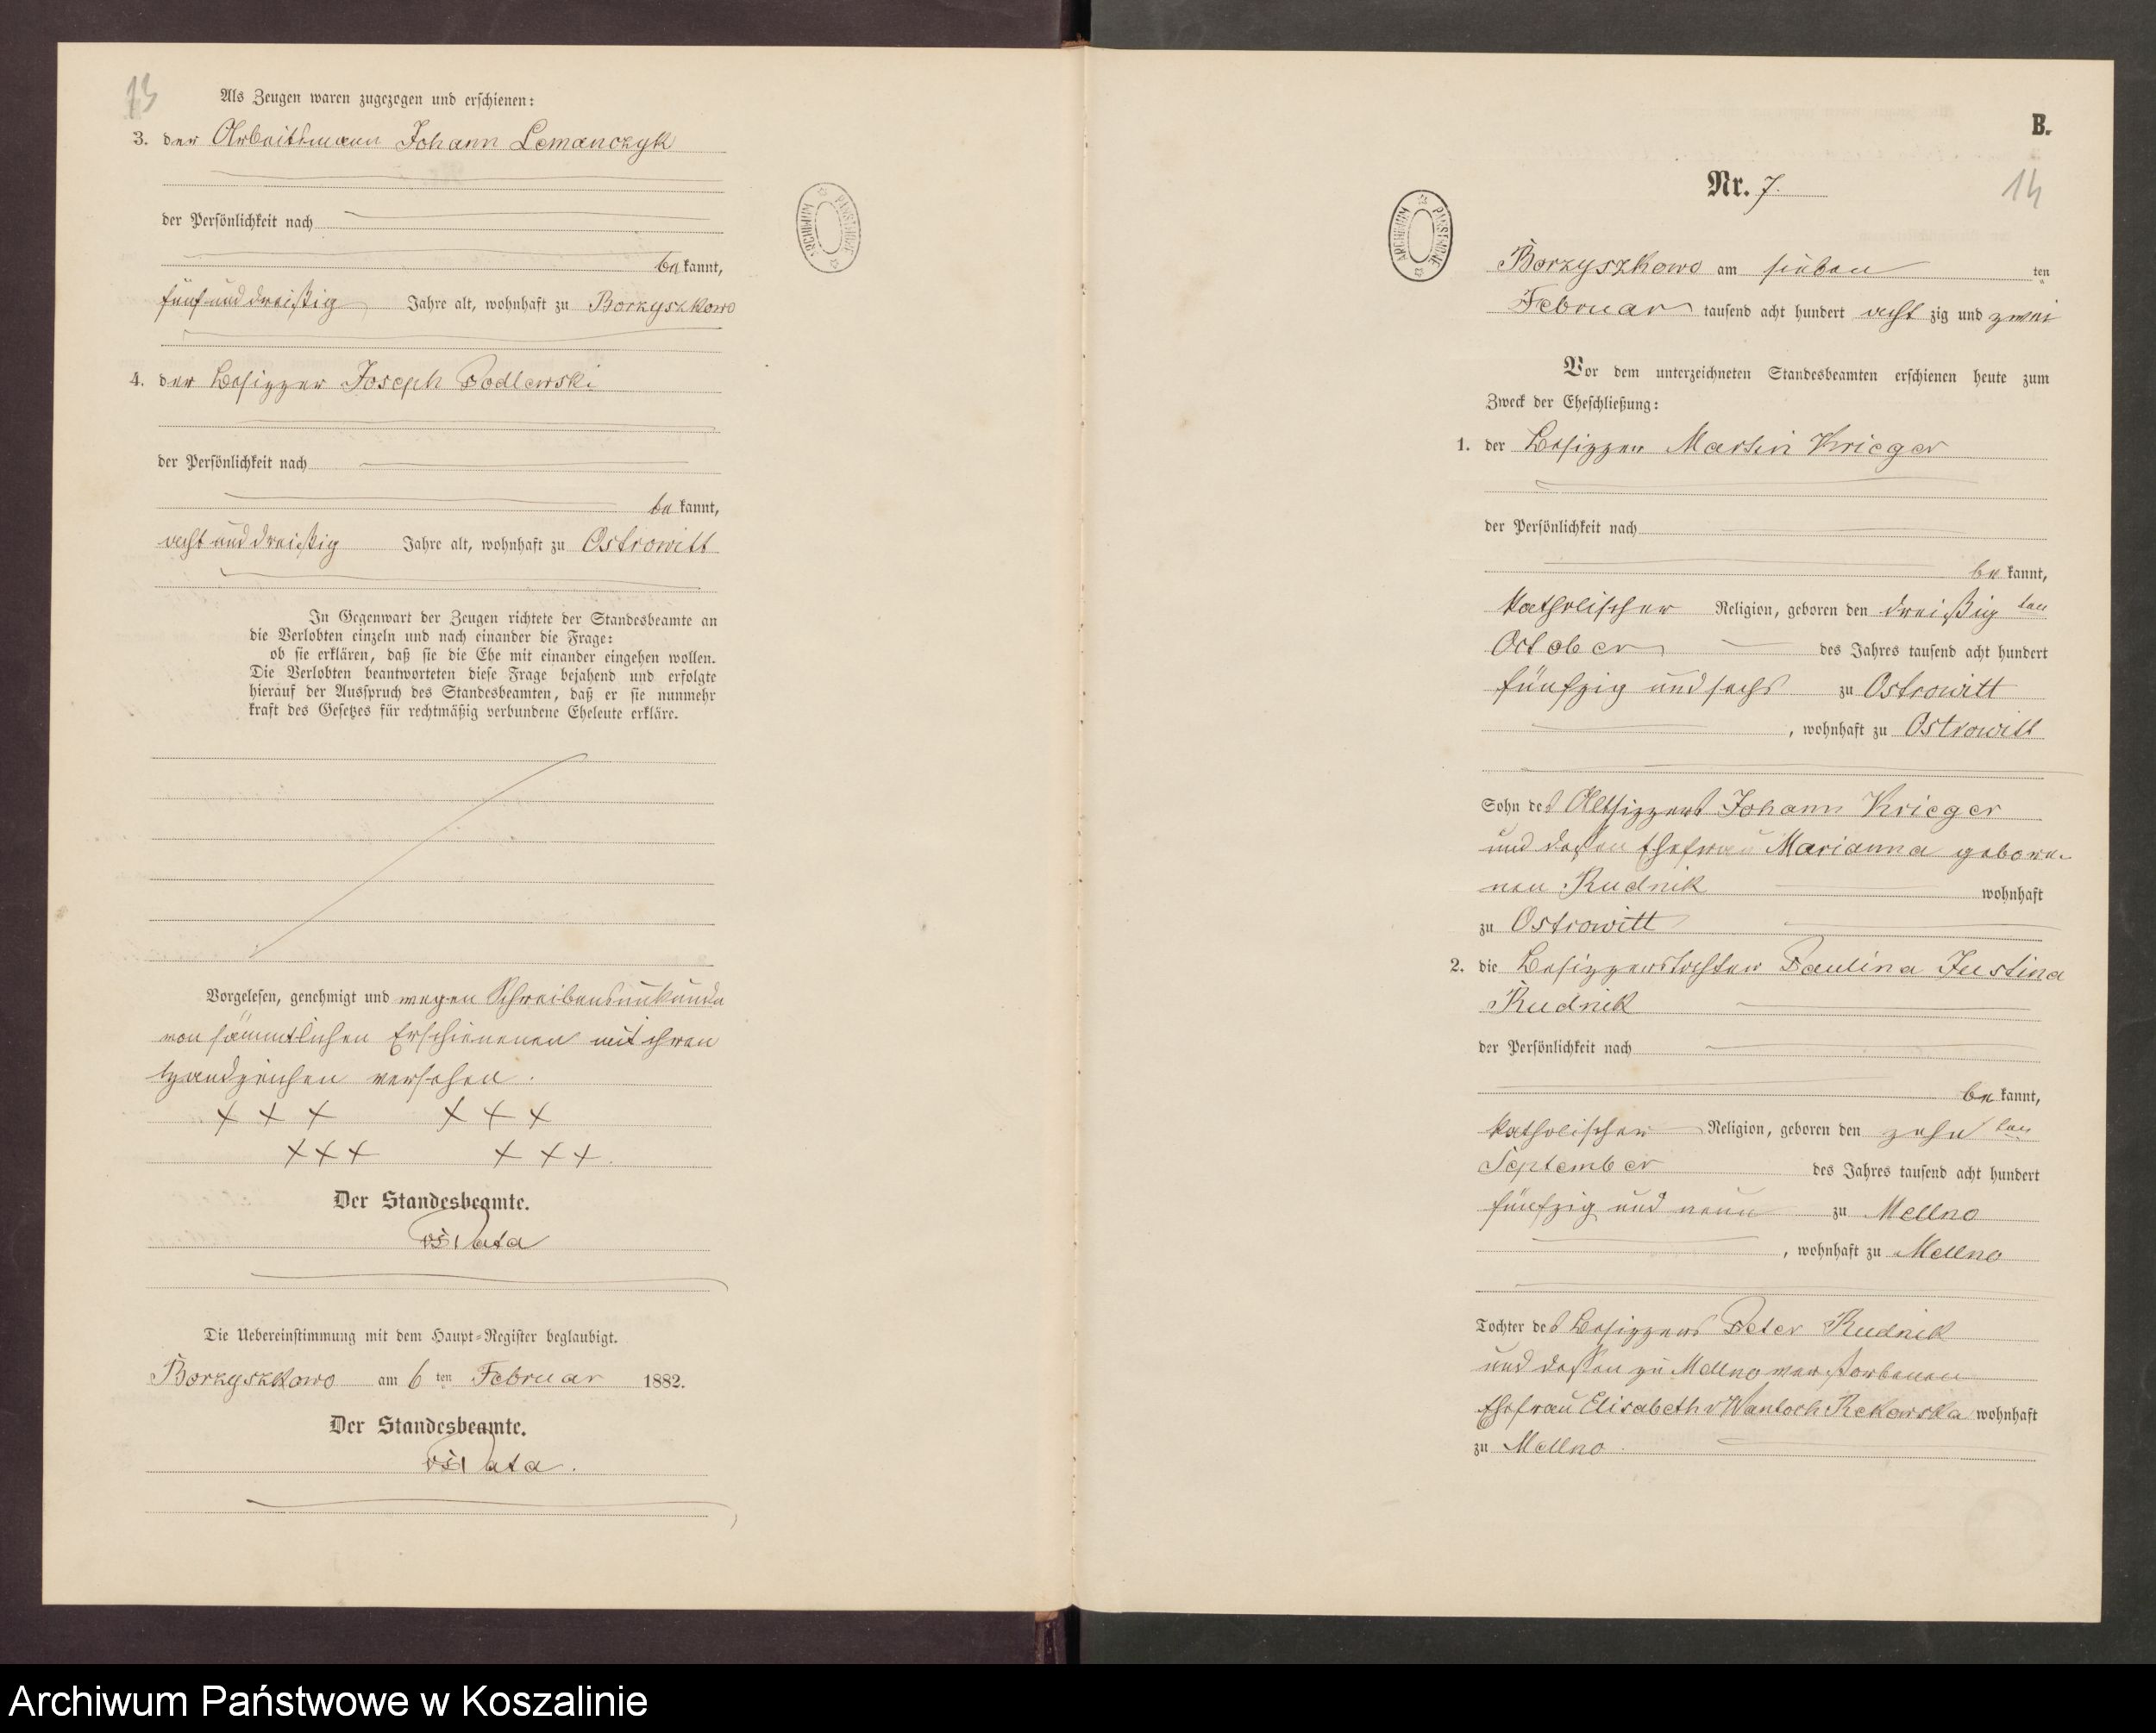 13
Als Zeugen waren zugezogen und erschienen:
3. der Arbeitsmann Johann Lemanczyk
der Persönlichkeit nach
be kannt,
fünf und dreißig Jahre alt, wohnhaft zu Borzyszkowo
4. der Besitzer Joseph Podlewski
der Persönlichkeit nach
be kannt,
acht und dreißig Jahre alt, wohnhaft zu Ostrowitt
In Gegenwart der Zeugen richtete der Standesbeamte an
die Verlobten einzeln und nach einander die Frage:
ob sie erklären, daß sie die Ehe mit einander eingehen wollen.
Die Verlobten beantworteten diese Frage bejahend und erfolgte
hierauf der Ausspruch des Standesbeamten, daß er sie nunmehr
kraft des Gesetzes für rechtmäßig verbundene Eheleute erkläre.
Vorgelesen, genehmigt und wegen Schreibensunkunde
von sämmtlichen Erschienenen mit ihren
Handzeichen versehen.
+ + + + + +
+ + + + + +.
Der Standesbeamte.
Die Uebereinstimmung mit dem Haupt-Register beglaubigt.
Borzyszkowo am 6 ten Februar 1882.
Der Standesbeamte.
ARCHIWUM PAŃSTWOWE
B.
14
Nr. 7.
ARCHIWUM PAŃSTWOWE
Borzyszkowo am sieben ten
Februar tausend acht hundert acht zig und zwei
Vor dem unterzeichneten Standesbeamten erschienen heute zum
Zweck der Eheschließung:
1. der Besitzer Martin Krieger
der Persönlichkeit nach
be kannt,
katholischer Religion, geboren den dreißig ten
October des Jahres tausend acht hundert
fünfzig und sechs zu Ostrowitt
, wohnhaft zu Ostrowitt
Sohn des Altsitzers Johann Krieger
und dessen Ehefrau Marianna gebore-
nen Rudnik wohnhaft
zu Ostrowitt
2. die Besitzerstochter Paulina Justina
Rudnik
der Persönlichkeit nach
be kannt,
katholischer Religion, geboren den zehn ten
September des Jahres tausend acht hundert
fünfzig und neun zu Mellno
, wohnhaft zu Mellno
Tochter des Besitzers Peter Rudnik
und dessen zu Mellno verstorbenen
Ehefrau Elisabeth v Wantoch Rekowska wohnhaft
zu Mellno
Archiwum Państwowe w Koszalinie